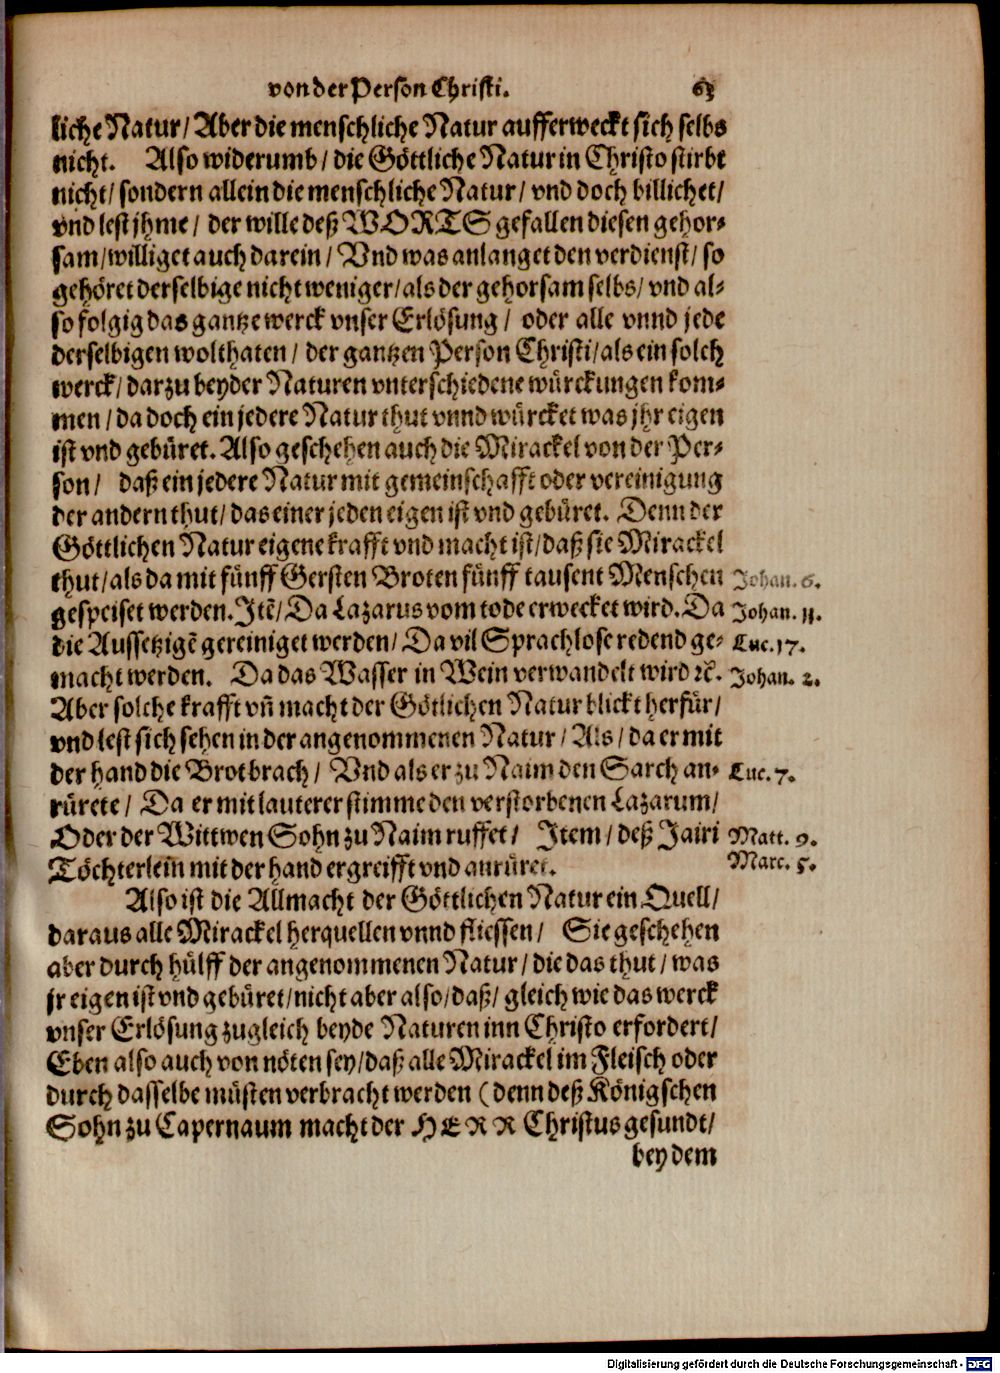 von der Person Christi. 63
liche Natur/ Aber die menschliche Natur aufferweckt sich selbs
nicht. Also widerumb/ die Göttliche Natur in Christo stirbt
nicht/ sondern allein die menschliche Natur/ vnd doch billichet/
vnd lest jhme/ der wille deß WORTS gefallen diesen gehor-
sam/ williget auch darein/ Vnd was anlanget den verdienst/ so
gehöret derselbige nicht weniger/ als der gehorsam selbs/ vnd al-
so folgig das gantze werck vnser Erlösung/ oder alle vnnd jede
derselbigen wolthaten/ der gantzen Person Christi/ als ein solch
werck/ darzu beyder Naturen vnterschiedene würckungen kom-
men/ da doch ein jedere Natur thut vnnd würcket was jhr eigen
ist vnd gebüret. Also geschehen auch die Mirackel von der Per-
son/ daß ein jedere Natur mit gemeinschafft oder vereinigung
der andern thut/ das einer jeden eigen ist vnd gebüret. Denn der
Göttlichen Natur eigene krafft vnd macht ist/ daß sie Mirackel
thut/ als da mit fünff Gersten Broten fünff tausent Menschen Johan. 6.
gespeiset werden. Itẽ/ Da Lazarus vom tode erwecket wird. Da Johan. 11.
die Aussetzigẽ gereiniget werden/ Da vil Sprachlose redend ge- Luc. 17.
macht werden. Da das Wasser in Wein verwandelt wird ꝛc. Johan. 2.
Aber solche krafft vñ macht der Götlichen Natur blickt herfür/
vnd lest sich sehen in der angenommenen Natur/ Als/ da er mit
der hand die Brot brach/ Vnd als er zu Naim den Sarch an- Luc. 7.
rürete/ Da er mit lauterer stimme den verstorbenen Lazarum/
Oder der Wittwen Sohn zu Naim ruffet/ Item/ deß Jairi Matt. 9.
Töchterlein mit der hand ergreifft vnd anrüret. Marc. 5.
Also ist die Allmacht der Göttlichen Natur ein Quell/
daraus alle Mirackel herquellen vnnd fliessen/ Sie geschehen
aber durch hülff der angenommenen Natur/ die das thut/ was
jr eigen ist vnd gebüret/ nicht aber also/ daß/ gleich wie das werck
vnser Erlösung zugleich beyde Naturen inn Christo erfordert/
Eben also auch von nöten sey/ daß alle Mirackel im Fleisch oder
durch dasselbe müsten verbracht werden (denn deß Königschen
Sohn zu Capernaum macht der HERR Christus gesundt/
bey dem
Digitalisierung gefördert durch die Deutsche Forschungsgemeinschaft - DFG